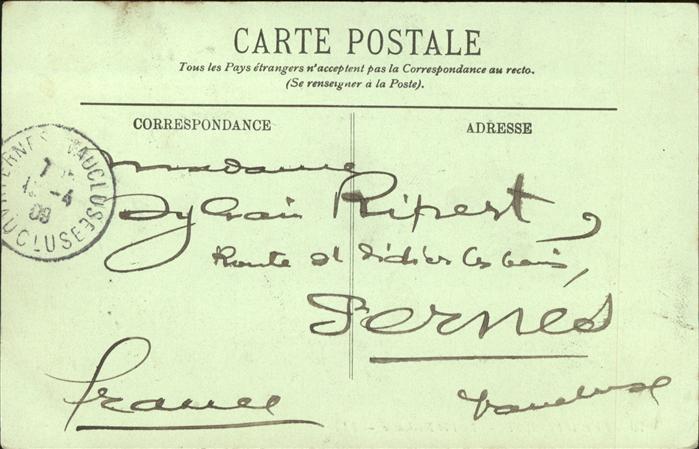 CARTE POSTALE
Tous les Pays étrangers n'acceptent pas la Correspondance au recto.
(Se renseigner à la Poste).
CORRESPONDANCE
ADRESSE
PERNES VAUCLUSE
7
-4
09
VAUCLUSE
Madame
Sylvain Ripert,
Route St Didier les bains,
Pernes
France
Vaucluse